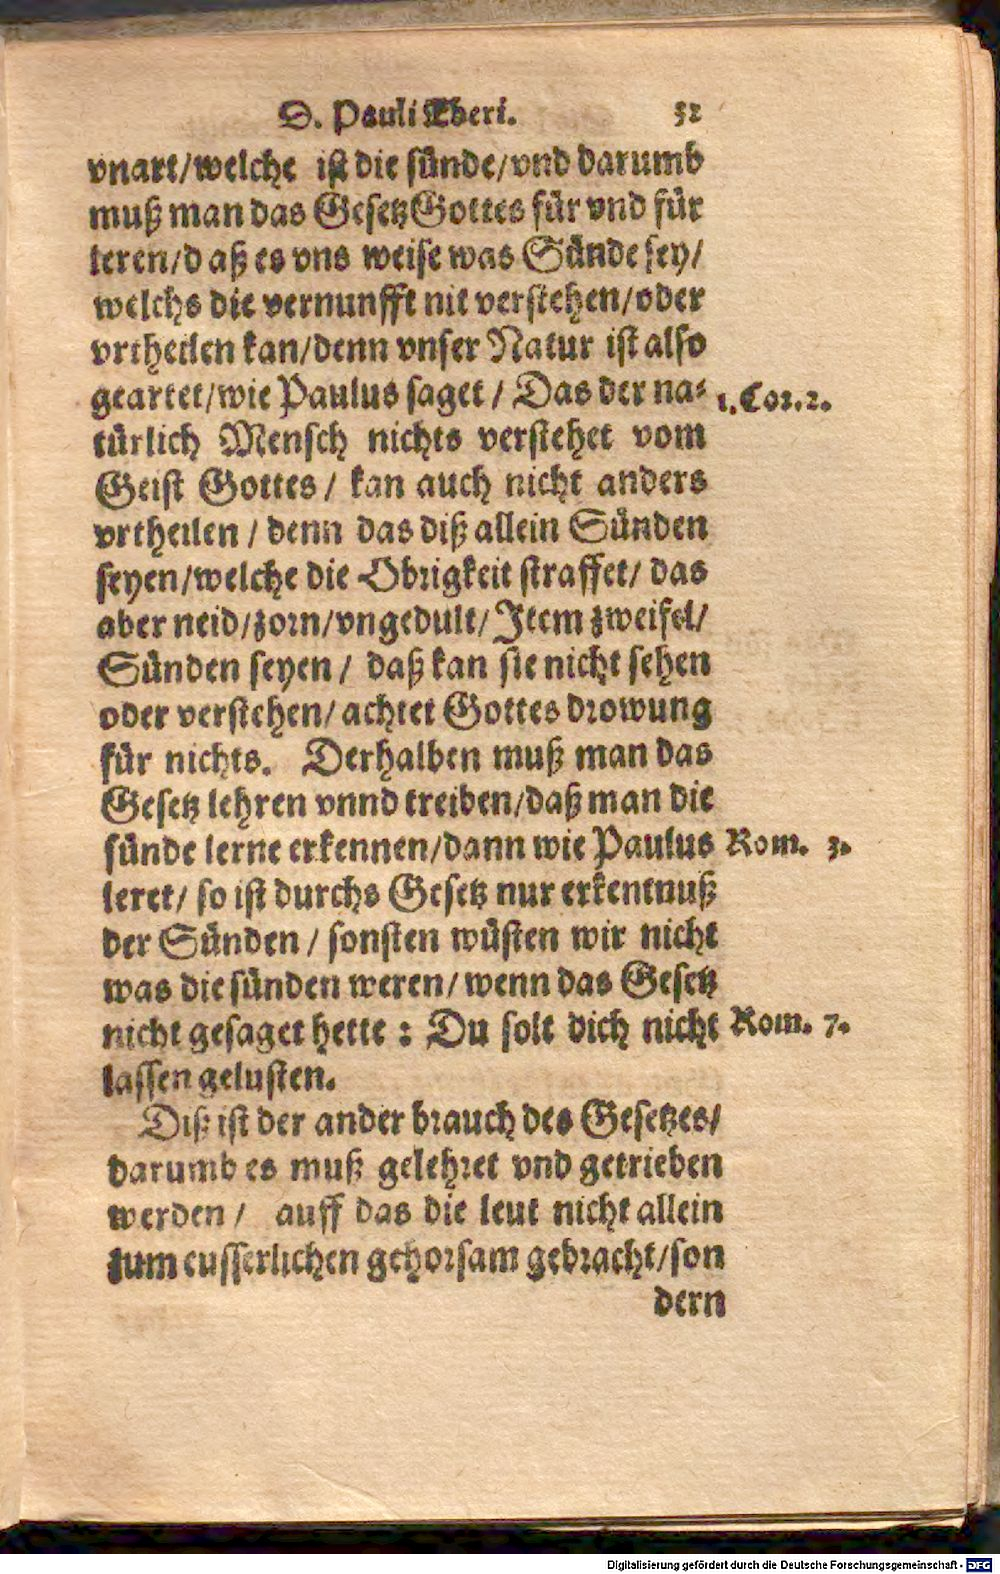 D. Pauli Eberi. 32
vnart/welche ist die sünde/vnd darumb
muß man das Gesetz Gottes für vnd für
leren/daß es vns weise was Sünde sey/
welchs die vernunfft nit verstehen/oder
vrtheilen kan/denn vnser Natur ist also
geartet/wie Paulus saget / Das der na- 1. Cor. 2.
türlich Mensch nichts verstehet vom
Geist Gottes / kan auch nicht anders
vrtheilen / denn das diß allein Sünden
seyen/welche die Obrigkeit straffet/ das
aber neid/zorn/vngedult/Item zweifel/
Sünden seyen / daß kan sie nicht sehen
oder verstehen/ achtet Gottes drowung
für nichts. Derhalben muß man das
Gesetz lehren vnnd treiben/daß man die
sünde lerne erkennen/dann wie Paulus Rom. 3.
leret/ so ist durchs Gesetz nur erkentnuß
der Sünden / sonsten wüsten wir nicht
was die sünden weren/ wenn das Gesetz
nicht gesaget hette : Du solt dich nicht Rom. 7.
lassen gelusten.
Diß ist der ander brauch des Gesetzes/
darumb es muß gelehret vnd getrieben
werden / auff das die leut nicht allein
zum eusserlichen gehorsam gebracht/son
dern
Digitalisierung gefördert durch die Deutsche Forschungsgemeinschaft - DFG